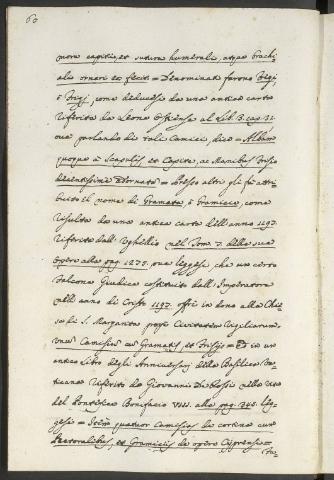 60
more capitis, et sutura humerali, atque brachi-
alis ornari et fecit = Denominati furono Frigj,
ò Frisj, come deducesi da una antica carta
riferita da Leone Ostiense al Lib. 3. cap. 31.
ove parlando di tali Camici, dice = Album
quoque à Scapulis et Capite, ac Manibus Frisio
decentissimè adornato = Presso altri gli fù attri-
buito il nome di Gramata, ò Gramicio, come
risulta da una antica carta dell'anno 1197.
riferita dall'Ughellio nel Tom. 7. della sua
opera alla pag. 1275. ove leggesi, che un certo
Falcone Giudice costituito dall'Imperatore
nell'anno di Cristo 1197. offrì in dono alla Chie-
sa di S. Margarita prope Civitatem Vigiliarum
unum Camisium cum Gramatis, et Frisijs = Ed in un
antico Libro degli Anniversarj della Basilica Va-
ticana riferito da Giovanni Rubeo nella vita
del Pontefice Bonifacio VIII. alla pag. 345. leg-
gesi = Item quatuor Camisias de cortina cum
Pectoralibus, et Gramiciis de opere Cyprense =